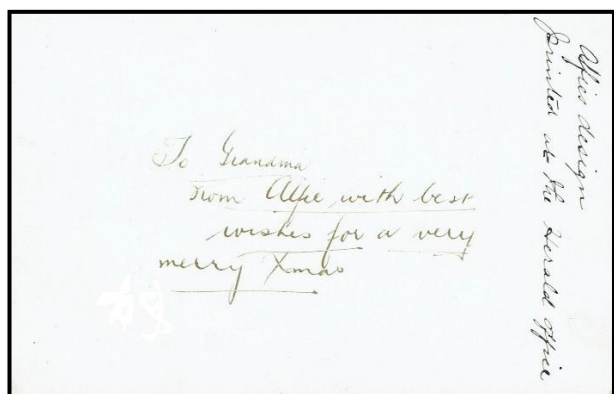 To Grandma
from Alfie with best
wishes for a very
merry Xmas
Alfies design
Printed at the Herald Office